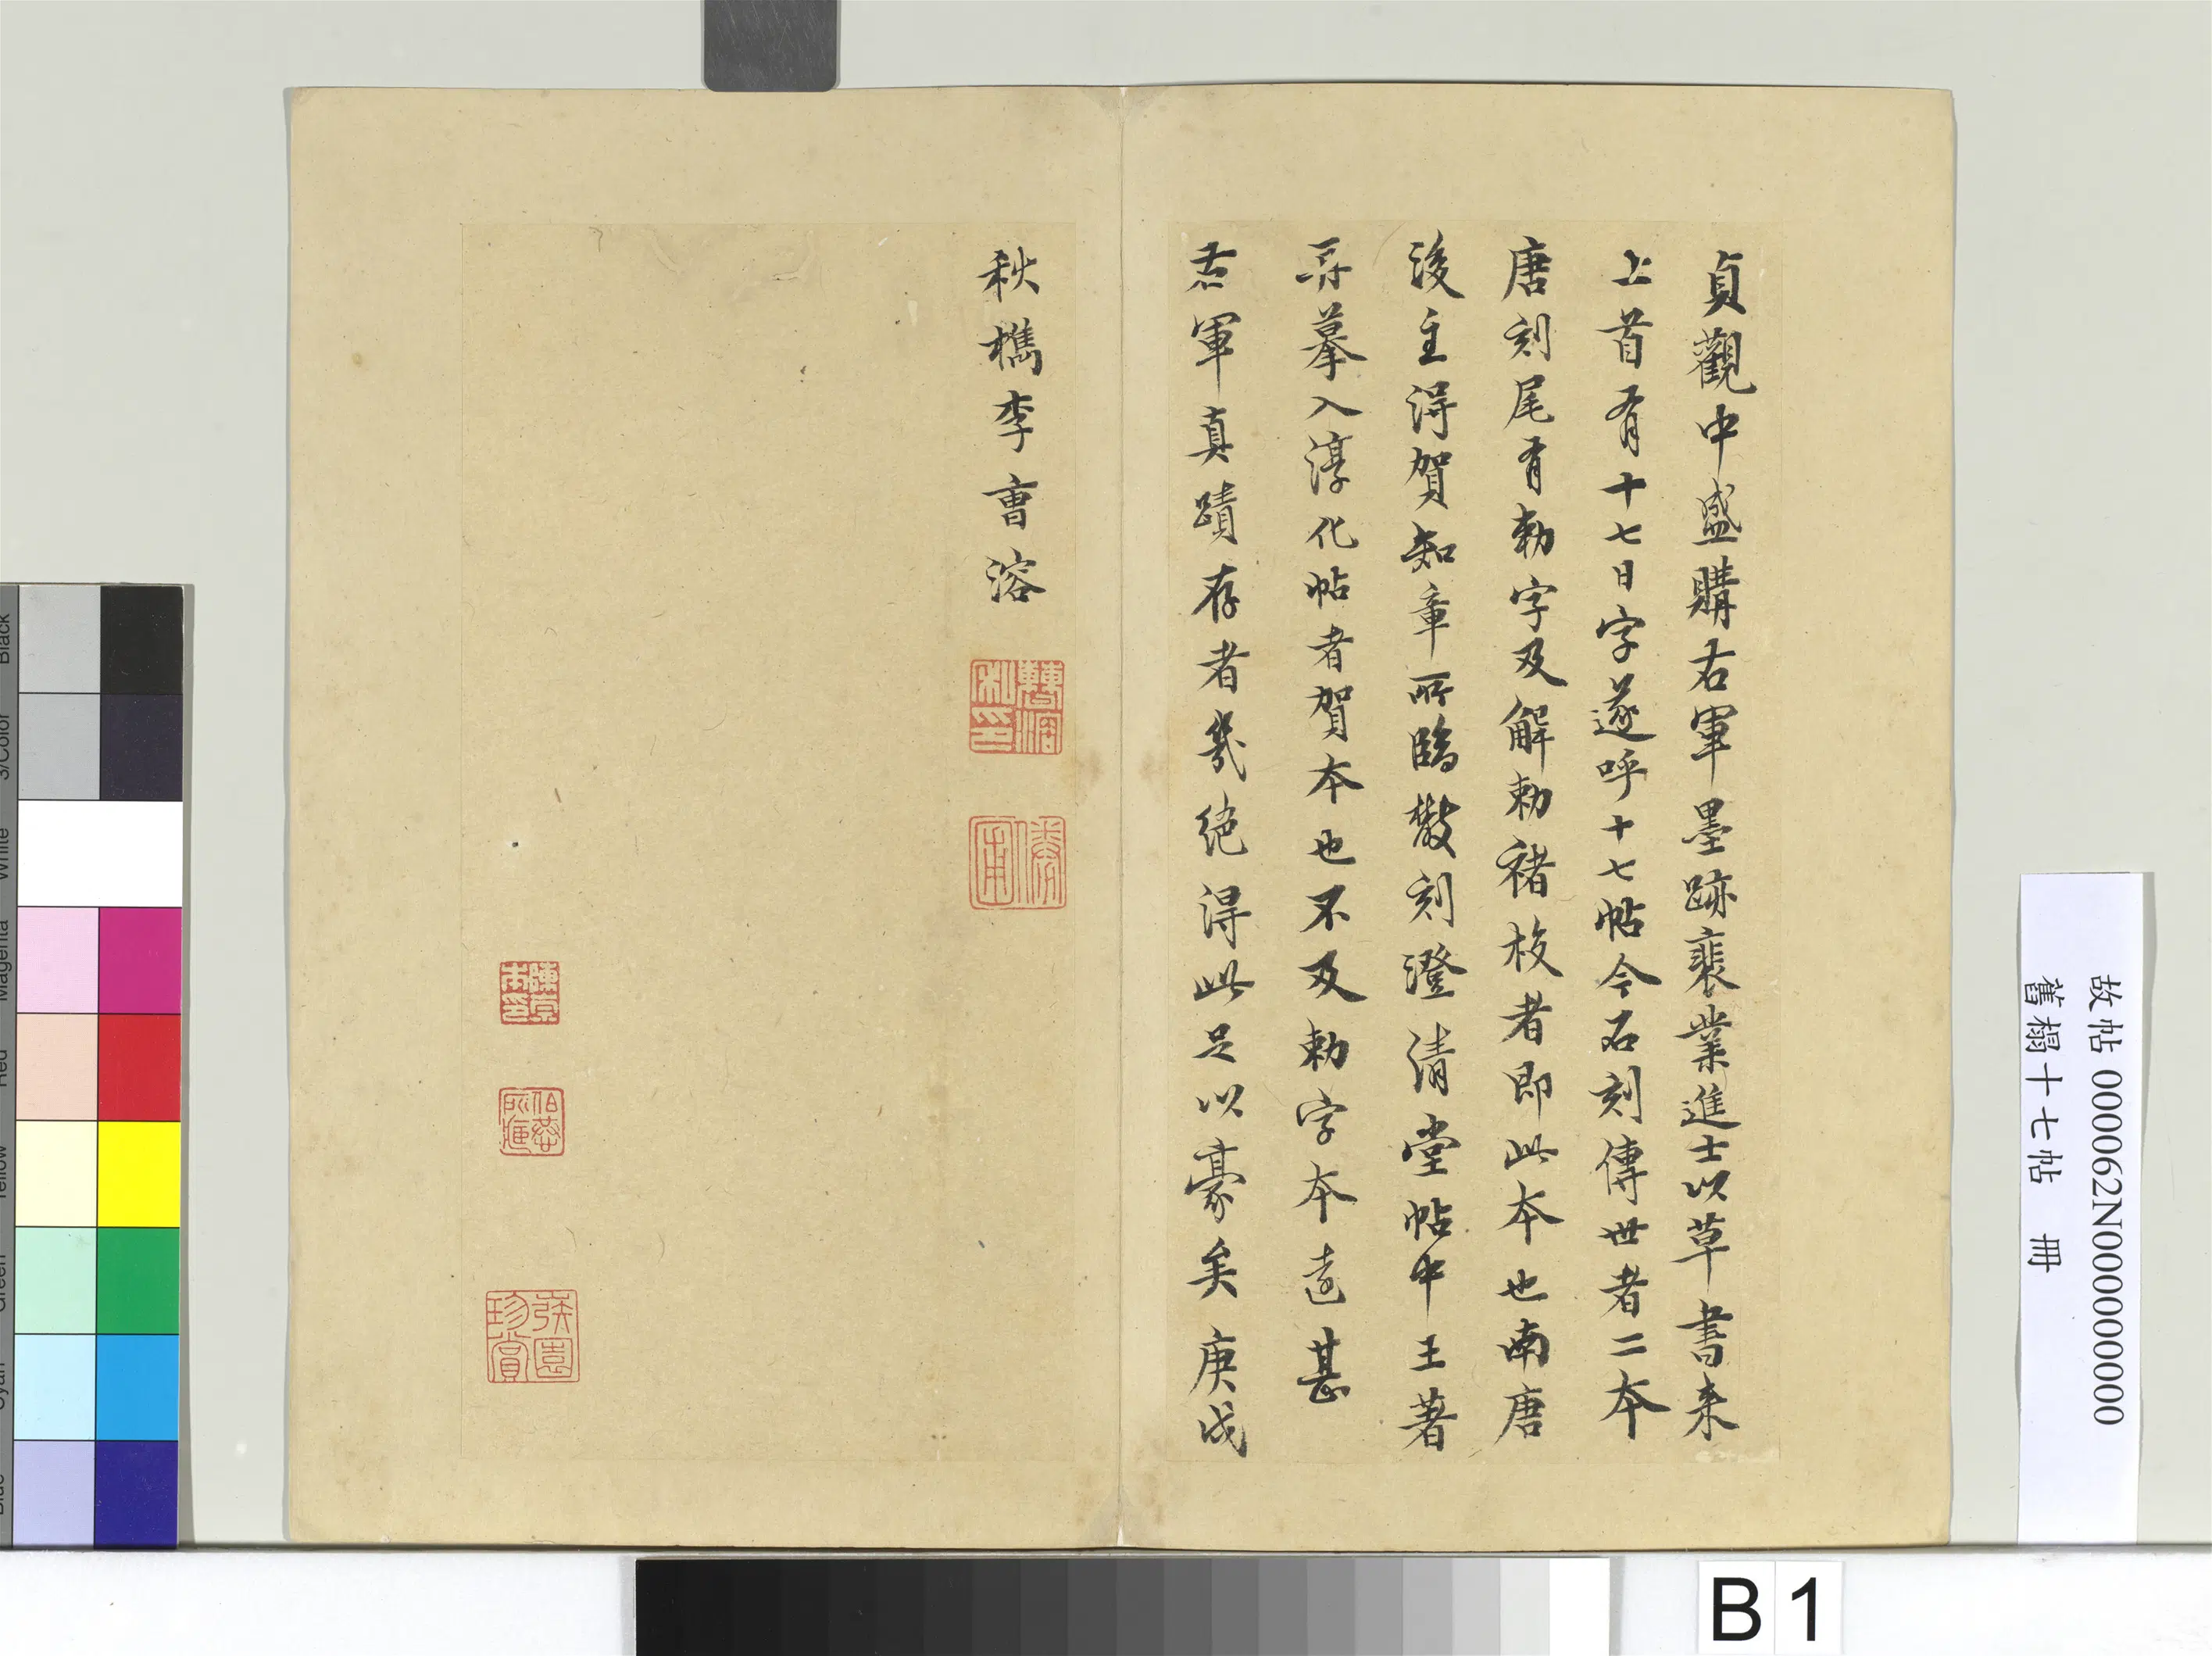 貞觀中盛購右軍墨跡裴業進士以草書来
上首有十七日字遂呼十七帖今石刻傳世者二本
唐刻尾有勅字及解勅褚校者即此本也南唐
後主得賀知章所臨數刻澄清堂帖中王著
再摹入淳化帖者賀本也不及勅字本遠甚
右軍真蹟存者幾絕得此足以豪矣庚戌
秋檇李曹溶
陳宗
本印
伯蓉
張園
珍賞
故帖 000062N000000000
舊搨十七帖 冊
B1
Black
3/Color
White
Magenta
Red
Yellow
Green
Cyan
Blue